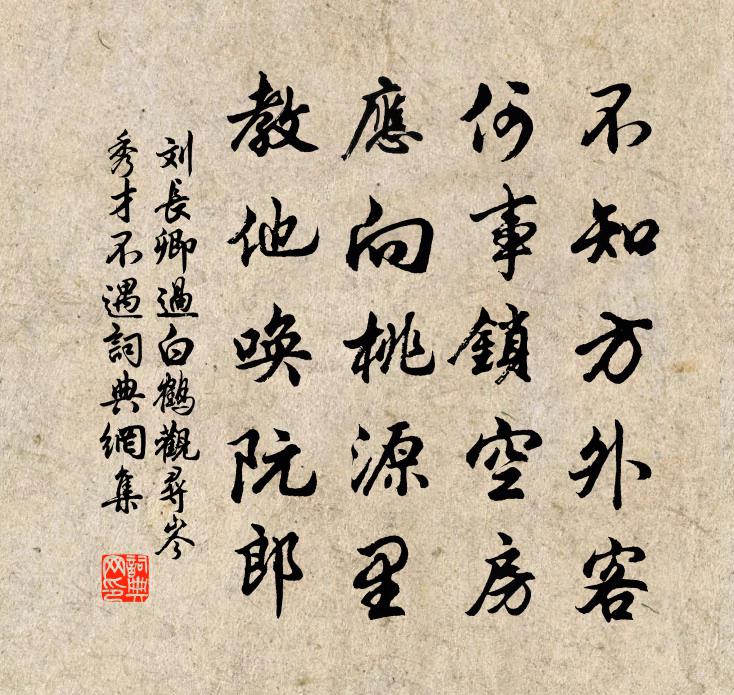 不知方外客
何事鎖空房
應向桃源里
教他唤阮郎
刘長卿過白鶴觀尋岑
秀才不遇詞典網集
詞典
网印